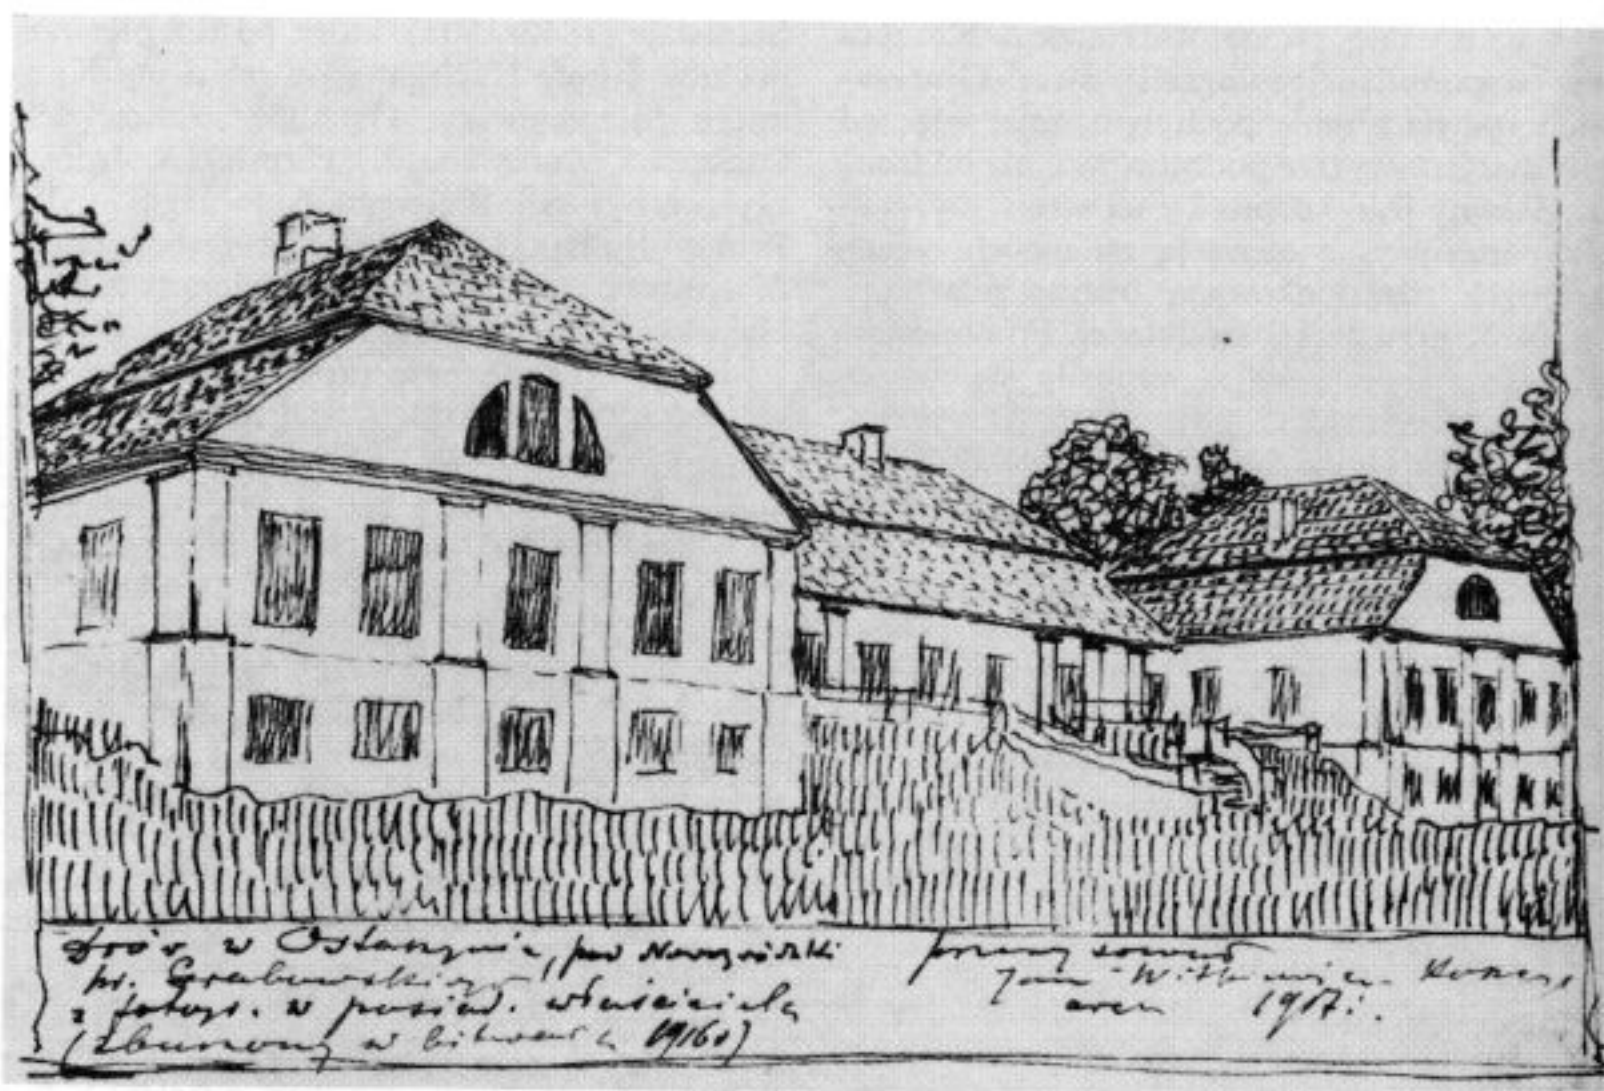 Dwór w Ostaszynie, pow. Nowogródzki
hr. Grabowskiego,
z fotogr. w posiad. właściciela
(zburzony w bitwach 1916 r)
przerysował
Jan Witkiewicz Koszyc
arch 1917 r.